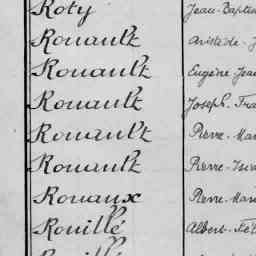 Roty Jean-Baptis
Rouault Aristide-J
Rouault Eugène Jea
Rouault Joseph-Fra
Rouault Pierre-Mar
Rouault Pierre-Isid
Rouaux Pierre-Mari
Rouillé Albert-Fél